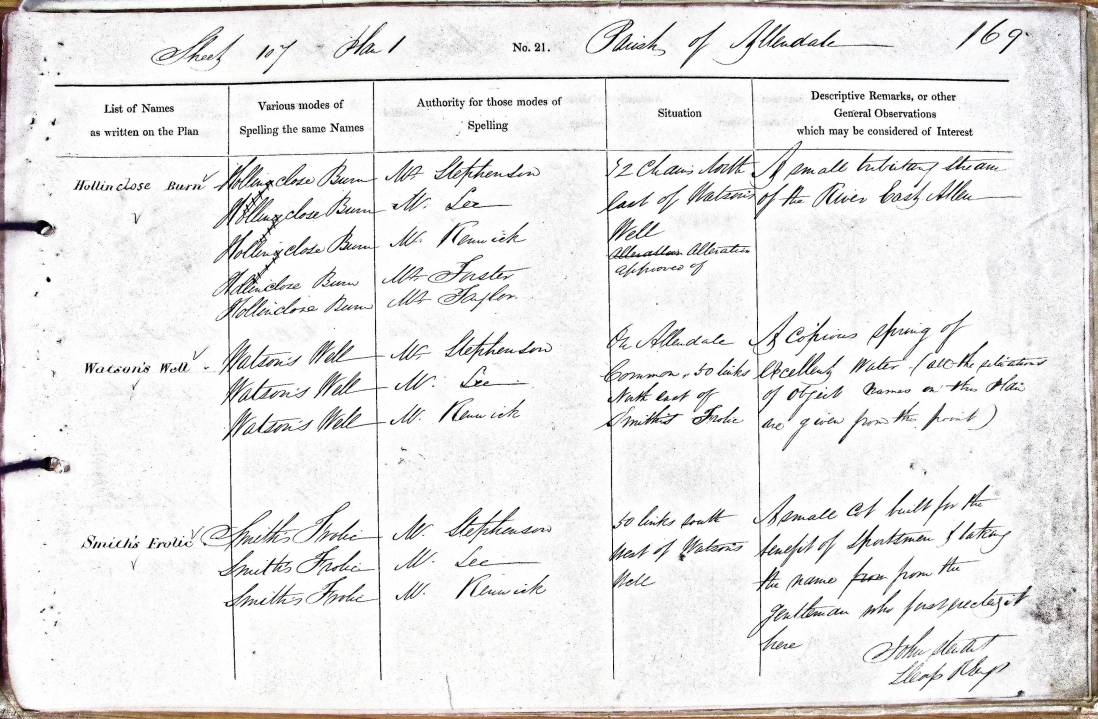 Sheet 107 Plan 1 No. 21. Parish of Allendale 169
List of Names
as written on the Plan
Various modes of
Spelling the same Names
Authority for those modes of
Spelling
Situation
Descriptive Remarks, or other
General Observations
which may be considered of Interest
Hollinclose Burn
Hollingclose Burn
Hollingclose Burn
Hollingclose Burn
Hollinclose Burn
Hollinclose Burn
Mr. Stephenson
Mr. Lee
Mr. Renwick
Mr. Forster
Mr. Taylor
52 Chains North
East of Watson's
Well
Alteration Alteration
approved of
A small tributary stream
of the River East Allen
Watson's Well
Watson's Well
Watson's Well
Watson's Well
Mr. Stephenson
Mr. Lee
Mr. Renwick
On Allendale
Common, 50 links
North east of
Smith's Frolic
A copious spring of
excellent Water (all the situations
of object names on this Plan
are given from the point)
Smith's Frolic
Smith's Frolic
Smith's Frolic
Smith's Frolic
Mr. Stephenson
Mr. Lee
Mr. Renwick
50 links south
west of Watson's
Well
A small cot built for the
benefit of Sportsmen & taking
the name from from the
gentleman who first erected it
here
John